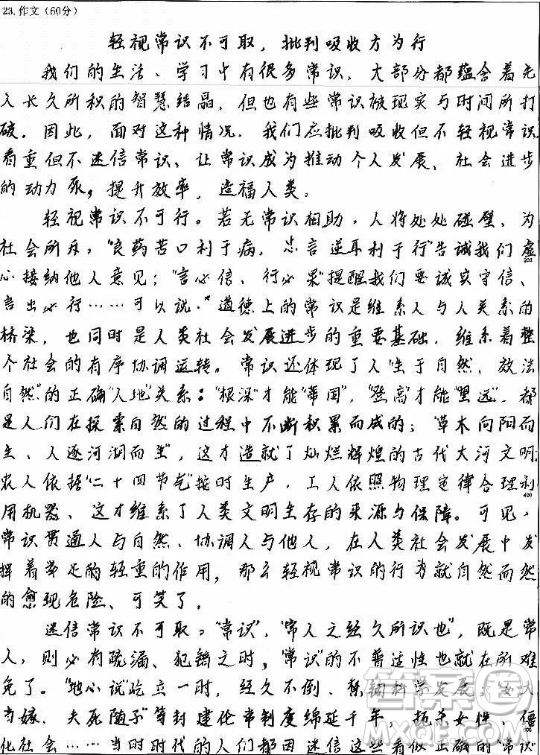 23.作文(60分)
轻视常识不可取，批判吸收方为行
我们的生活、学习中有很多常识，大部分都蕴含着先
人长久所积的智慧结晶，但也有些常识被现实与时间所打
破。因此，面对这种情况，我们应批判吸收但不轻视常识
看重但不迷信常识、让常识成为推动个人发展、社会进步
的动力泵，提升效率，造福人类。
轻视常识不可行。若无常识相助，人将处处碰壁、为
社会所斥，“良药苦口利于病，忠言逆耳利于行”告诫我们虚
心接纳他人意见；“言必信、行必果”提醒我们要诚实守信、
言出必行……可以说，道德上的常识是维系人与人关系的
桥梁，也同时是人类社会发展进步的重要基础，维系着整
个社会的有序协调运转。常识还体现了人“生于自然、放法
自然”的正确“人地”关系：“根深”才能“蒂固”，“登高”才能“望远”，都
是人们在探索自然的过程中不断积累而成的；“草木向阳而
生、人逐河润而生”，这才造就了灿烂辉煌的古代大河文明
农人依据“二十四节气”按时生产，工人依照物理定律合理利
用机器、这才维系了人类文明生存的来源与保障。可见，
常识贯通人与自然、协调人与他人，在人类社会发展中发
挥着举足的轻重的作用，那么轻视常识的行为就自然而然
的愈现危险、可笑了。
迷信常识不可取。“常识”，“常人之经久所识也”，既是常
人，则必有疏漏、犯错之时，“常识”的不普适性也就在所难
免了。“地心说”屹立一时，经久不倒、禁锢科学发展；“女大
当嫁、夫死随子”等封建伦常制度绵延千年，扼杀女性，僵
化社会……当时时代的人们都因迷信这些看似正确的常识